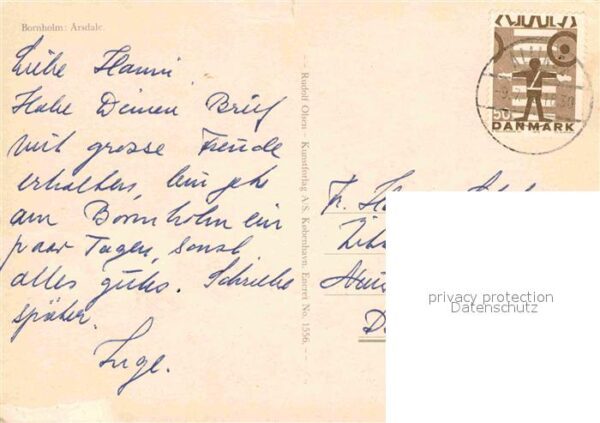 Bornholm: Årsdale.
Liebe Hanni,
Habe Deinen Brief
mit grosse Freude
erhalten, bin jetz
am Bornholm ein
paar Tagen, sonst
alles gutes. Schreibe
später.
Inge.
-- Rudolf Olsen - Kunstforlag A/S. København. Eneret No. 1556. --
50
DANMARK
Fr.
D
privacy protection
Datenschutz